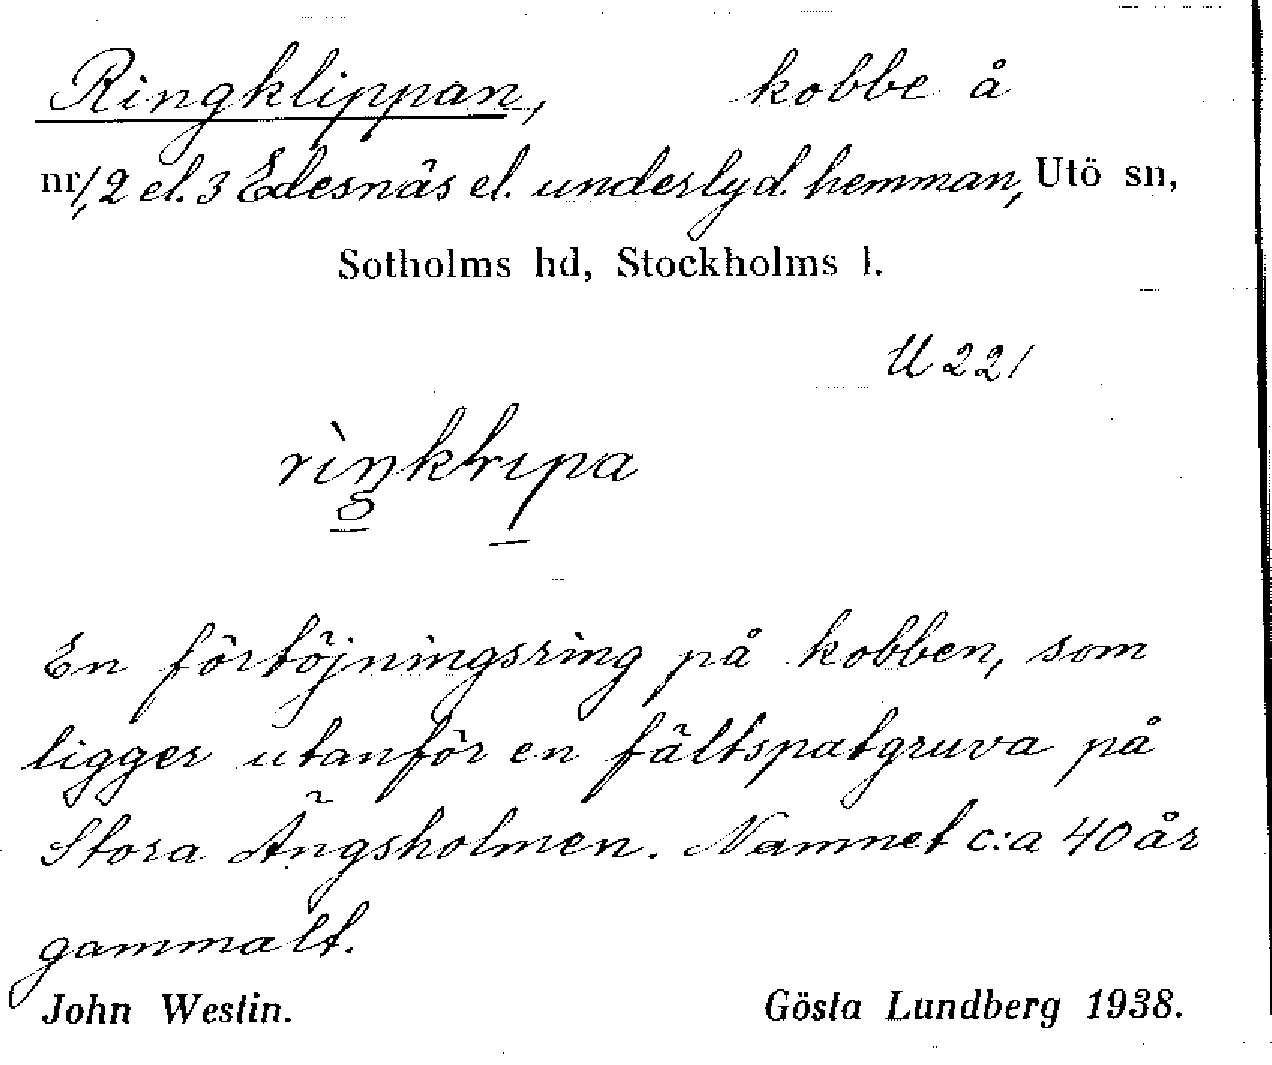 Ringklippan, kobbe å
nr 1, 2 el. 3 Edesnäs el. underlyd. hemman, Utö sn,
Sotholms hd, Stockholms l.
U 221
En förtöjningsring på kobben, som
ligger utanför en fältspatgruva på
Stora Ängsholmen. Namnet c:a 40 år
gammalt.
John Westin. Gösta Lundberg 1938.